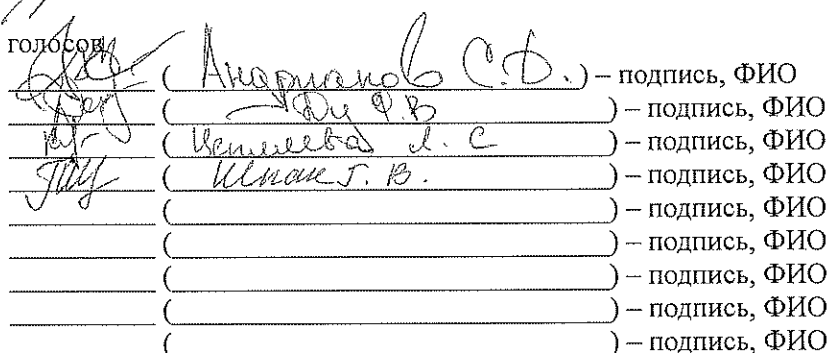 голосов
( Андрианов С.Д. ) – подпись, ФИО
( Ду Ф.В ) – подпись, ФИО
( Л. С ) – подпись, ФИО
( Шпак Г. В. ) – подпись, ФИО
( ) – подпись, ФИО
( ) – подпись, ФИО
( ) – подпись, ФИО
( ) – подпись, ФИО
( ) – подпись, ФИО